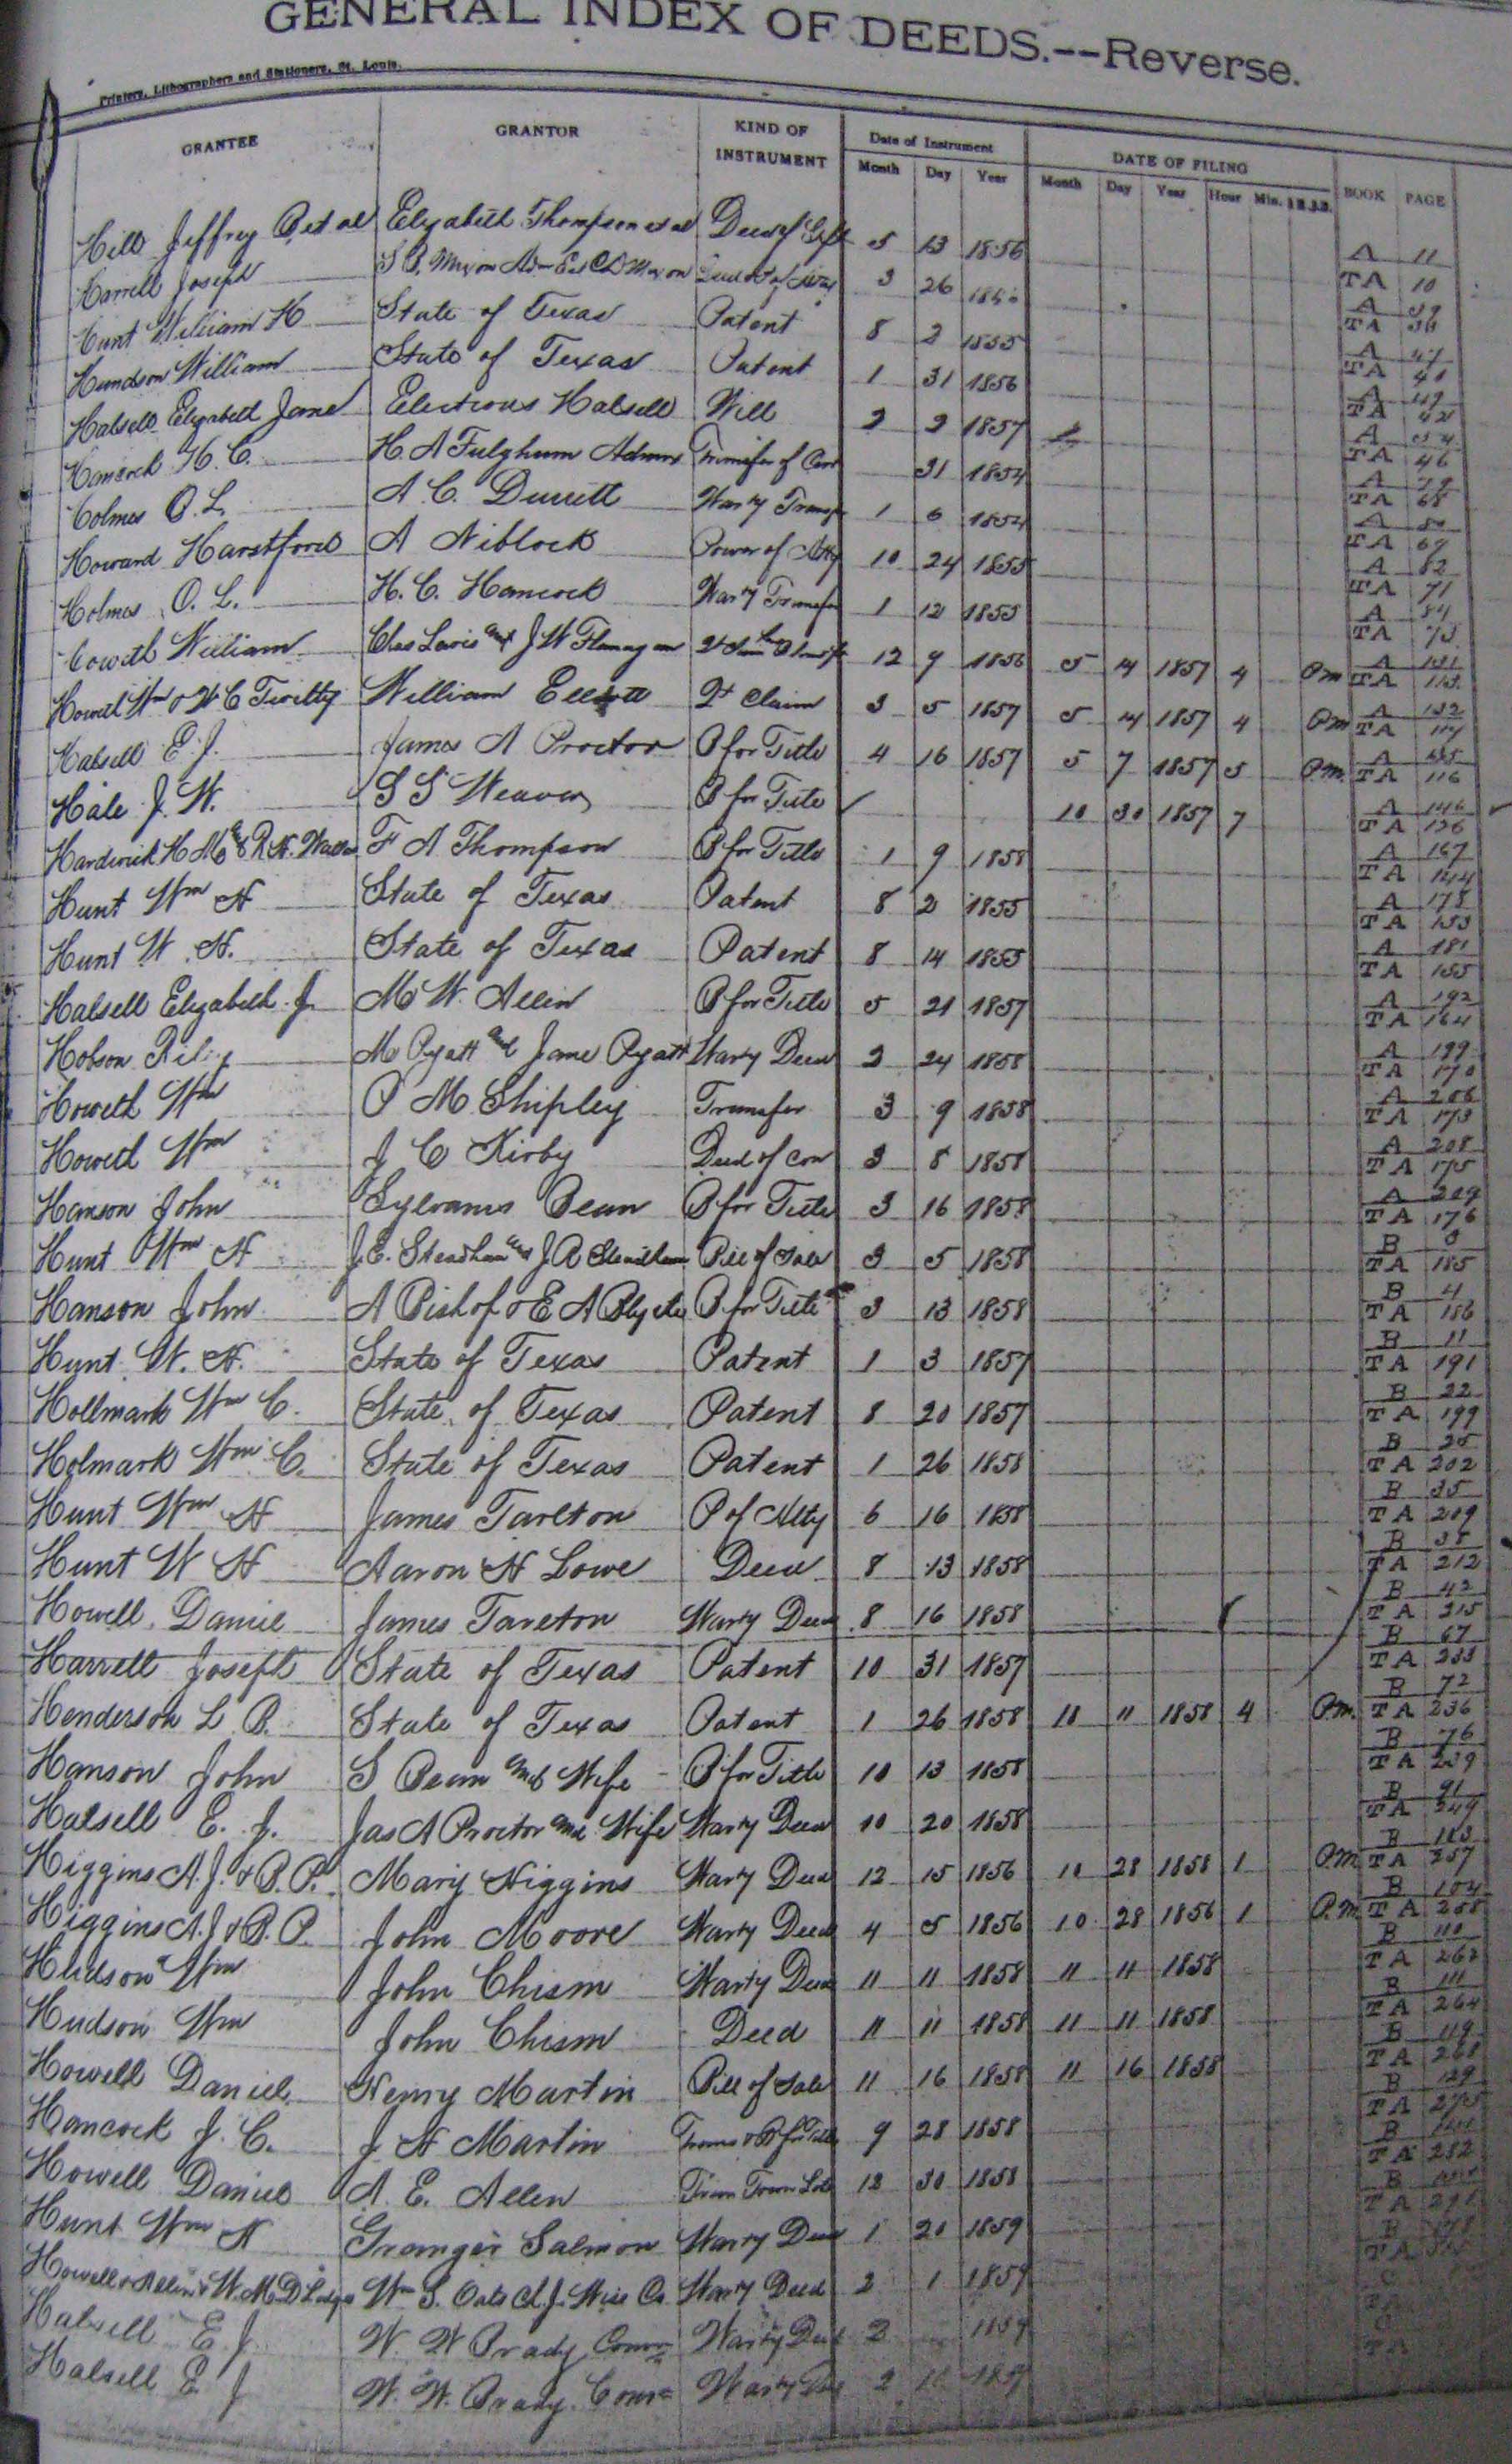 GENERAL INDEX OF DEEDS.--Reverse.
Printers, Lithographers and Stationers, St. Louis.
GRANTEE GRANTOR KIND OF INSTRUMENT Date of Instrument DATE OF FILING BOOK PAGE
Month Day Year Month Day Year Hour Min.
Hill Jeffrey et al Elizabeth Thompson et al Deed of Gift 5 13 1856 A 11 TA 10
Harrell Joseph 3 26 A TA
Hunt William H State of Texas Patent 8 2 1855 A TA 40
Hundson William State of Texas Patent 1 31 1856 A TA 42
Halsell Elizabeth Jane Electious Halsell Will 2 2 1857 A TA 46
Hancock H. C. H. A Fulghum Admr Transfer of 31 1854 A 79 TA 68
Holmes O. L. A. C. Durrett Warty Transf 1 6 1854 A 80 TA 69
Howard Harstford A Niblock Power of Atty 10 24 1855 A 82 TA 71
Holmes O. L. H. C. Hancock Warty Transfer 1 12 1855 A 84 TA 73
Howeth William Chas Lewis and J W Flanagan 12 9 1856 5 14 1857 4 P.m A 131 TA 113
Howeth Wm & W C Twitty William Elliott Qt Claim 3 5 1857 5 14 1857 4 P.m A 132 TA 114
Halsell E. J. James A Proctor B for Title 4 16 1857 5 7 1857 5 P.m. A 135 TA 116
Hale J. W. S S Weaver B for Title 10 30 1857 7 A 146 TA 126
Hardwick H M & R. N. F A Thompson B for Title 1 9 1858 A 167 TA 144
Hunt Wm H State of Texas Patent 8 2 1855 A 178 TA 153
Hunt W. H. State of Texas Patent 8 14 1855 A 181 TA 155
Halsell Elizabeth J. M W. Allen B for Title 5 21 1857 A 192 TA 164
Hobson Riley M Pyatt and Jane Pyatt Warty Deed 2 24 1858 A 199 TA 170
Howeth Wm P M Shipley Transfer 3 9 1858 A 206 TA 173
Howeth Wm J C Kirby Deed of Con 3 8 1858 A 208 TA 175
Hanson John Sylvanus Bean B for Title 3 16 1858 A 209 TA 176
Hunt Wm H J. E. Steadham and J R Steadham Bill of Sale 3 5 1858 B 3 TA 185
Hanson John A Bishop & E A Blythe B for Title 3 13 1858 B 4 TA 186
Hunt W. H. State of Texas Patent 1 3 1857 B 11 TA 191
Hollmark Wm C. State of Texas Patent 8 20 1857 B 22 TA 199
Holmark Wm C. State of Texas Patent 1 26 1858 B 25 TA 202
Hunt Wm H James Tarlton P of Atty 6 16 1858 B 35 TA 209
Hunt W H Aaron H Lowe Deed 8 13 1858 B 38 TA 212
Howell Daniel James Tarlton Warty Deed 8 16 1858 B 42 TA 215
Harrell Joseph State of Texas Patent 10 31 1857 B 67 TA 233
Henderson L B. State of Texas Patent 1 26 1858 11 11 1858 4 P.m. B 72 TA 236
Hanson John S Bean and Wife B for Title 10 13 1858 B 76 TA 239
Halsell E. J. Jas A Proctor and Wife Warty Deed 10 20 1858 B 91 TA 249
Higgins A. J. & B. P. Mary Higgins Warty Deed 12 15 1856 10 28 1858 1 P.m. B 103 TA 257
Higgins A. J & B. P. John Moore Warty Deed 4 5 1856 10 28 1856 1 P.m. B 104 TA 258
Hudson Wm John Chism Warty Deed 11 11 1858 11 11 1858 B 110 TA 262
Hudson Wm John Chism Deed 11 11 1858 11 11 1858 B 111 TA 264
Howell Daniel Henry Martin Bill of Sale 11 16 1858 11 16 1858 B 119 TA 268
Hancock J. C. J H Martin Trans & B for Title 9 28 1858 B 129 TA 275
Howell Daniel A. E. Allen Town Lots 12 30 1858 B TA 282
Hunt Wm H Granger Salmon Warty Deed 1 20 1859 B TA
Howell & Allen & W. M. D Wm S. Oats C. J. Wise Co. Warty Deed 2 1 1859 B TA
Halsell E. J. W. W Brady Comr Warty Deed 2 1859 TA
Halsell E J W. W. Brady Comr Warty Deed 2 1859 TA